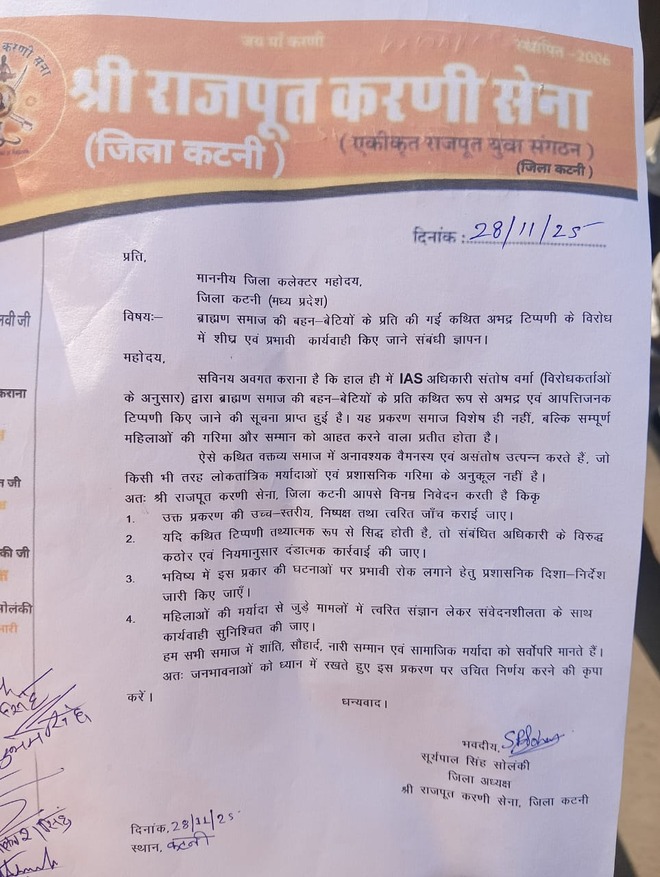 जय माँ करणी
स्थापित -2006
श्री राजपूत करणी सेना
(जिला कटनी)
(एकीकृत राजपूत युवा संगठन)
(जिला कटनी)
दिनांक : 28/11/25
प्रति,
माननीय जिला कलेक्टर महोदय,
जिला कटनी (मध्य प्रदेश)
विषयः– ब्राह्मण समाज की बहन–बेटियों के प्रति की गई कथित अभद्र टिप्पणी के विरोध
में शीघ्र एवं प्रभावी कार्यवाही किए जाने संबंधी ज्ञापन।
महोदय,
सविनय अवगत कराना है कि हाल ही में IAS अधिकारी संतोष वर्मा (विरोधकर्ताओं
के अनुसार) द्वारा ब्राह्मण समाज की बहन–बेटियों के प्रति कथित रूप से अभद्र एवं आपत्तिजनक
टिप्पणी किए जाने की सूचना प्राप्त हुई है। यह प्रकरण समाज विशेष ही नहीं, बल्कि सम्पूर्ण
महिलाओं की गरिमा और सम्मान को आहत करने वाला प्रतीत होता है।
ऐसे कथित वक्तव्य समाज में अनावश्यक वैमनस्य एवं असंतोष उत्पन्न करते हैं, जो
किसी भी तरह लोकतांत्रिक मर्यादाओं एवं प्रशासनिक गरिमा के अनुकूल नहीं है।
अतः श्री राजपूत करणी सेना, जिला कटनी आपसे विनम्र निवेदन करती है किकृ
1. उक्त प्रकरण की उच्च–स्तरीय, निष्पक्ष तथा त्वरित जाँच कराई जाए।
2. यदि कथित टिप्पणी तथ्यात्मक रूप से सिद्ध होती है, तो संबंधित अधिकारी के विरुद्ध
कठोर एवं नियमानुसार दंडात्मक कार्रवाई की जाए।
3. भविष्य में इस प्रकार की घटनाओं पर प्रभावी रोक लगाने हेतु प्रशासनिक दिशा–निर्देश
जारी किए जाएँ।
4. महिलाओं की मर्यादा से जुड़े मामलों में त्वरित संज्ञान लेकर संवेदनशीलता के साथ
कार्यवाही सुनिश्चित की जाए।
हम सभी समाज में शांति, सौहार्द, नारी सम्मान एवं सामाजिक मर्यादा को सर्वोपरि मानते हैं।
अतः जनभावनाओं को ध्यान में रखते हुए इस प्रकरण पर उचित निर्णय करने की कृपा
करें।
धन्यवाद।
भवदीय,
सूर्यपाल सिंह सोलंकी
जिला अध्यक्ष
श्री राजपूत करणी सेना, जिला कटनी
दिनांक, 28/11/25
स्थान, कटनी